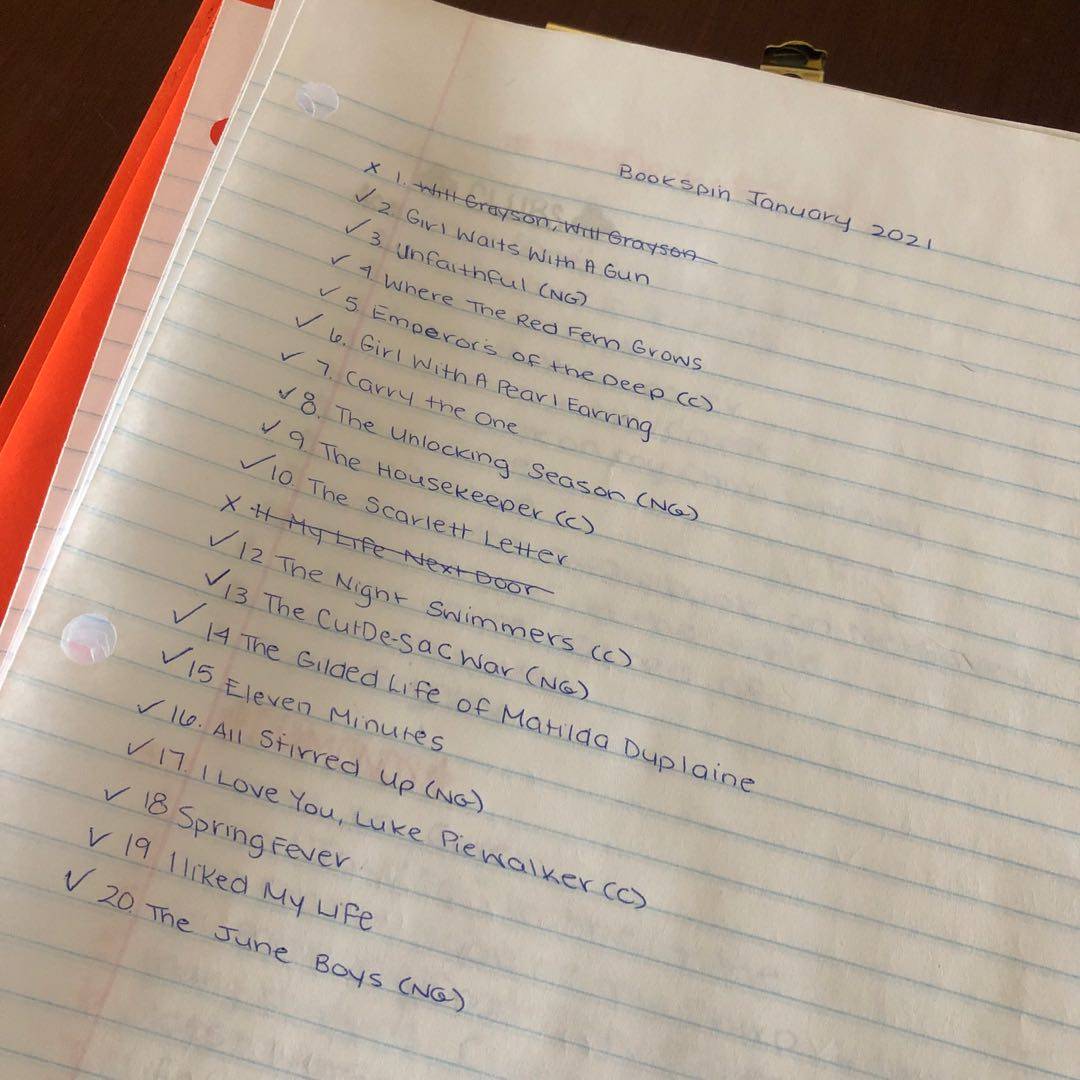 Bookspin January 2021
X 1. Will Grayson, Will Grayson
✓ 2. Girl Waits With A Gun
✓ 3. Unfaithful (NG)
✓ 4. Where The Red Fern Grows
✓ 5. Emperor's of the Deep (C)
✓ 6. Girl With A Pearl Earring
✓ 7. Carry the One
✓ 8. The Unlocking Season (NG)
✓ 9. The Housekeeper (C)
✓ 10. The Scarlett Letter
X 11 My Life Next Door
✓ 12 The Night Swimmers (C)
✓ 13 The CutDe-sac War (NG)
✓ 14 The Gilded Life of Matilda Duplaine
✓ 15 Eleven Minutes
✓ 16. All Stirred Up (NG)
✓ 17. I Love You, Luke Piewalker (C)
✓ 18 Spring Fever
✓ 19 I liked My Life
✓ 20. The June Boys (NG)